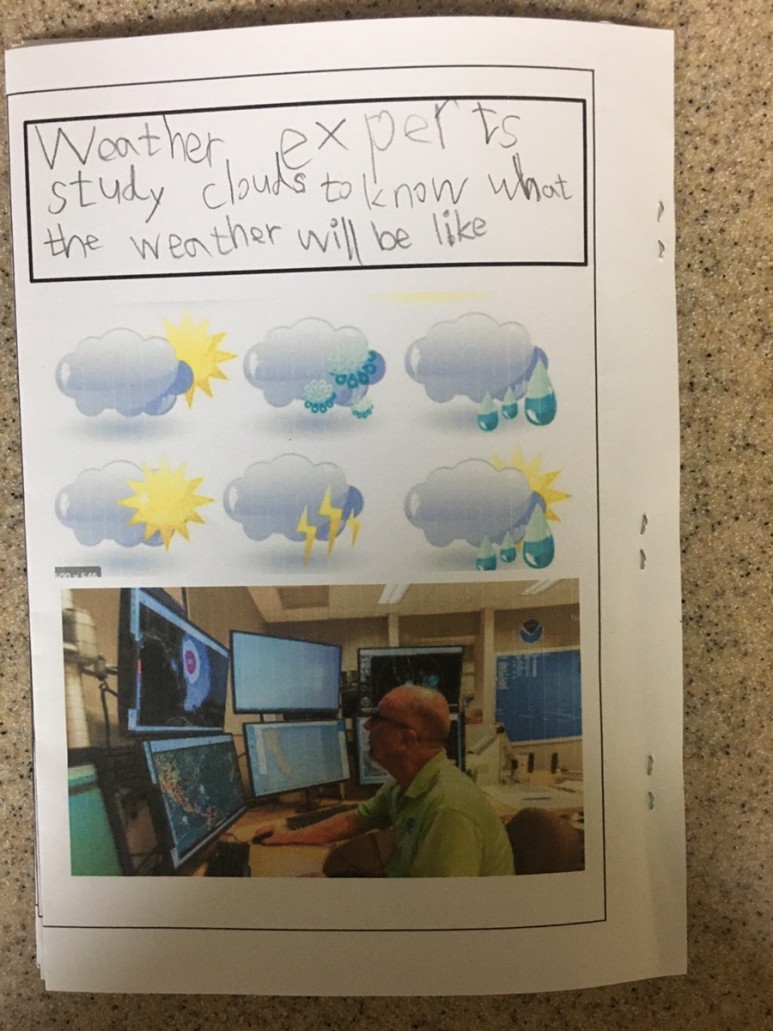 Weather experts
study clouds to know what
the weather will be like